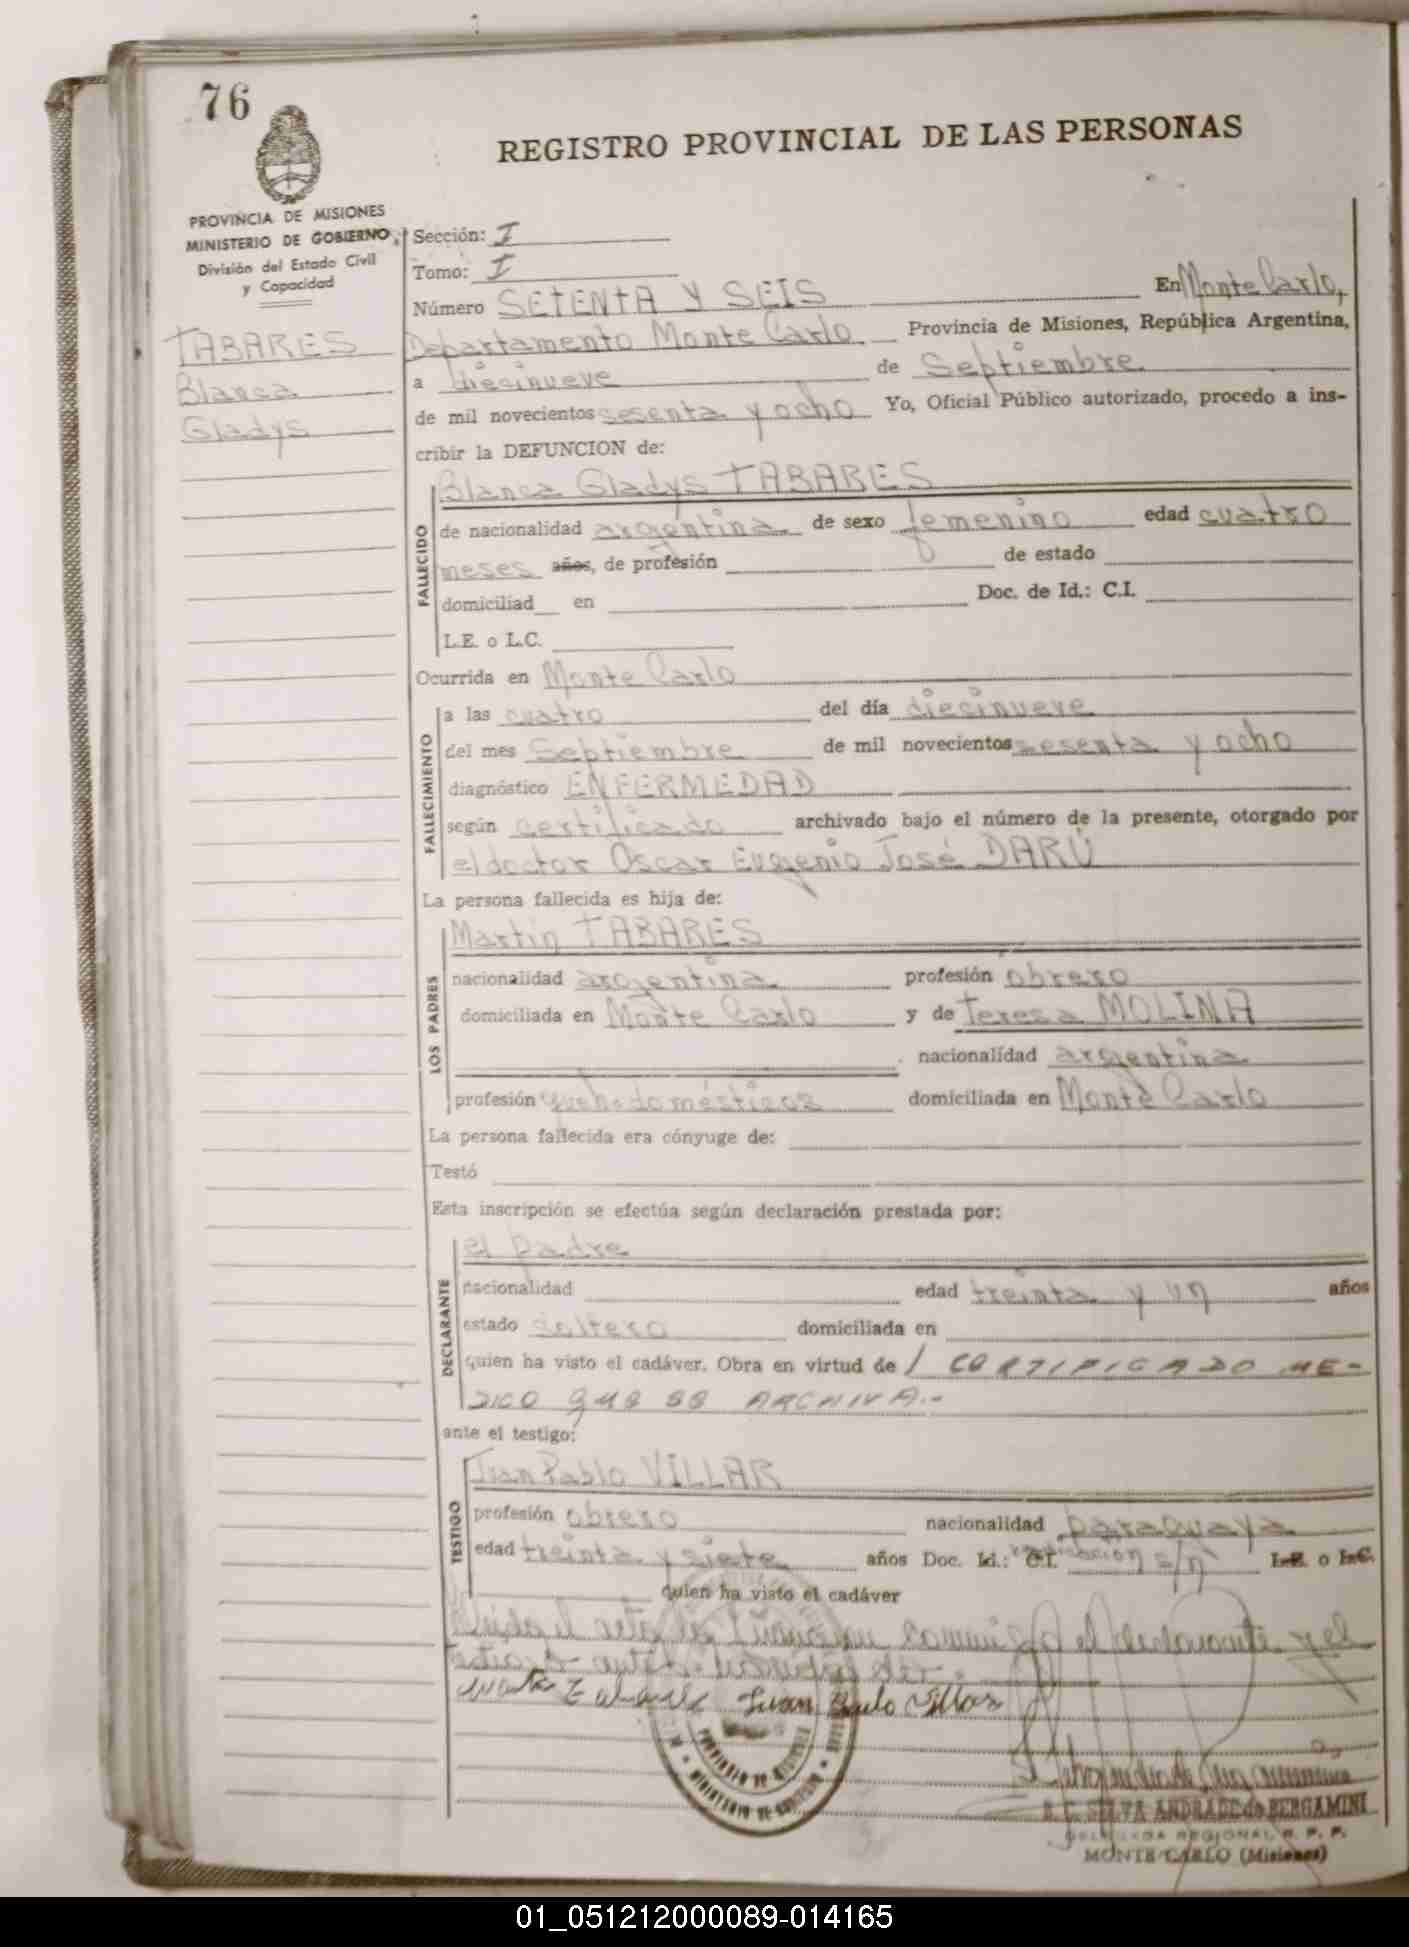 76
REGISTRO PROVINCIAL DE LAS PERSONAS
PROVINCIA DE MISIONES
MINISTERIO DE GOBIERNO
División del Estado Civil
y Capacidad
TABARES
Blanca
Gladys
Sección: I
Tomo: I
Número SETENTA Y SEIS En Monte Carlo,
Departamento Monte Carlo. Provincia de Misiones, República Argentina,
a diecinueve de Septiembre
de mil novecientos sesenta y ocho Yo, Oficial Público autorizado, procedo a ins-
cribir la DEFUNCION de:
FALLECIDO
Blanca Gladys TABARES
de nacionalidad argentina de sexo femenino edad cuatro
meses años, de profesión de estado
domiciliad en Doc. de Id.: C.I.
L.E. o L.C.
Ocurrida en Monte Carlo
FALLECIMIENTO
a las cuatro del día diecinueve
del mes Septiembre de mil novecientos sesenta y ocho
diagnóstico ENFERMEDAD
según certificado archivado bajo el número de la presente, otorgado por
el doctor Oscar Eugenio José DARÚ
La persona fallecida es hija de:
LOS PADRES
Martin TABARES
nacionalidad argentina profesión obrero
domiciliada en Monte Carlo y de Teresa MOLINA
nacionalidad argentina
profesión queh. domésticos domiciliada en Monte Carlo
La persona fallecida era cónyuge de:
Testó
Esta inscripción se efectúa según declaración prestada por:
DECLARANTE
el padre
nacionalidad edad treinta y un años
estado soltero domiciliada en
quien ha visto el cadáver. Obra en virtud de CERTIFICADO ME-
DICO QUE SE ARCHIVA.-
ante el testigo:
TESTIGO
Juan Pablo VILLAR
profesión obrero nacionalidad paraguaya
edad treinta y siete años Doc. Id.: C.I. s/n L.E. o L.C.
quien ha visto el cadáver
el acta la conmigo el declarante y el
testigo antes
Juan Paulo Villar
PROVINCIA DE MISIONES
MINISTERIO DE GOBIERNO
S. C. SILVA ANDRADE de BERGAMINI
DELEGADA REGIONAL R. P. P.
MONTE CARLO (Misiones)
01_051212000089-014165